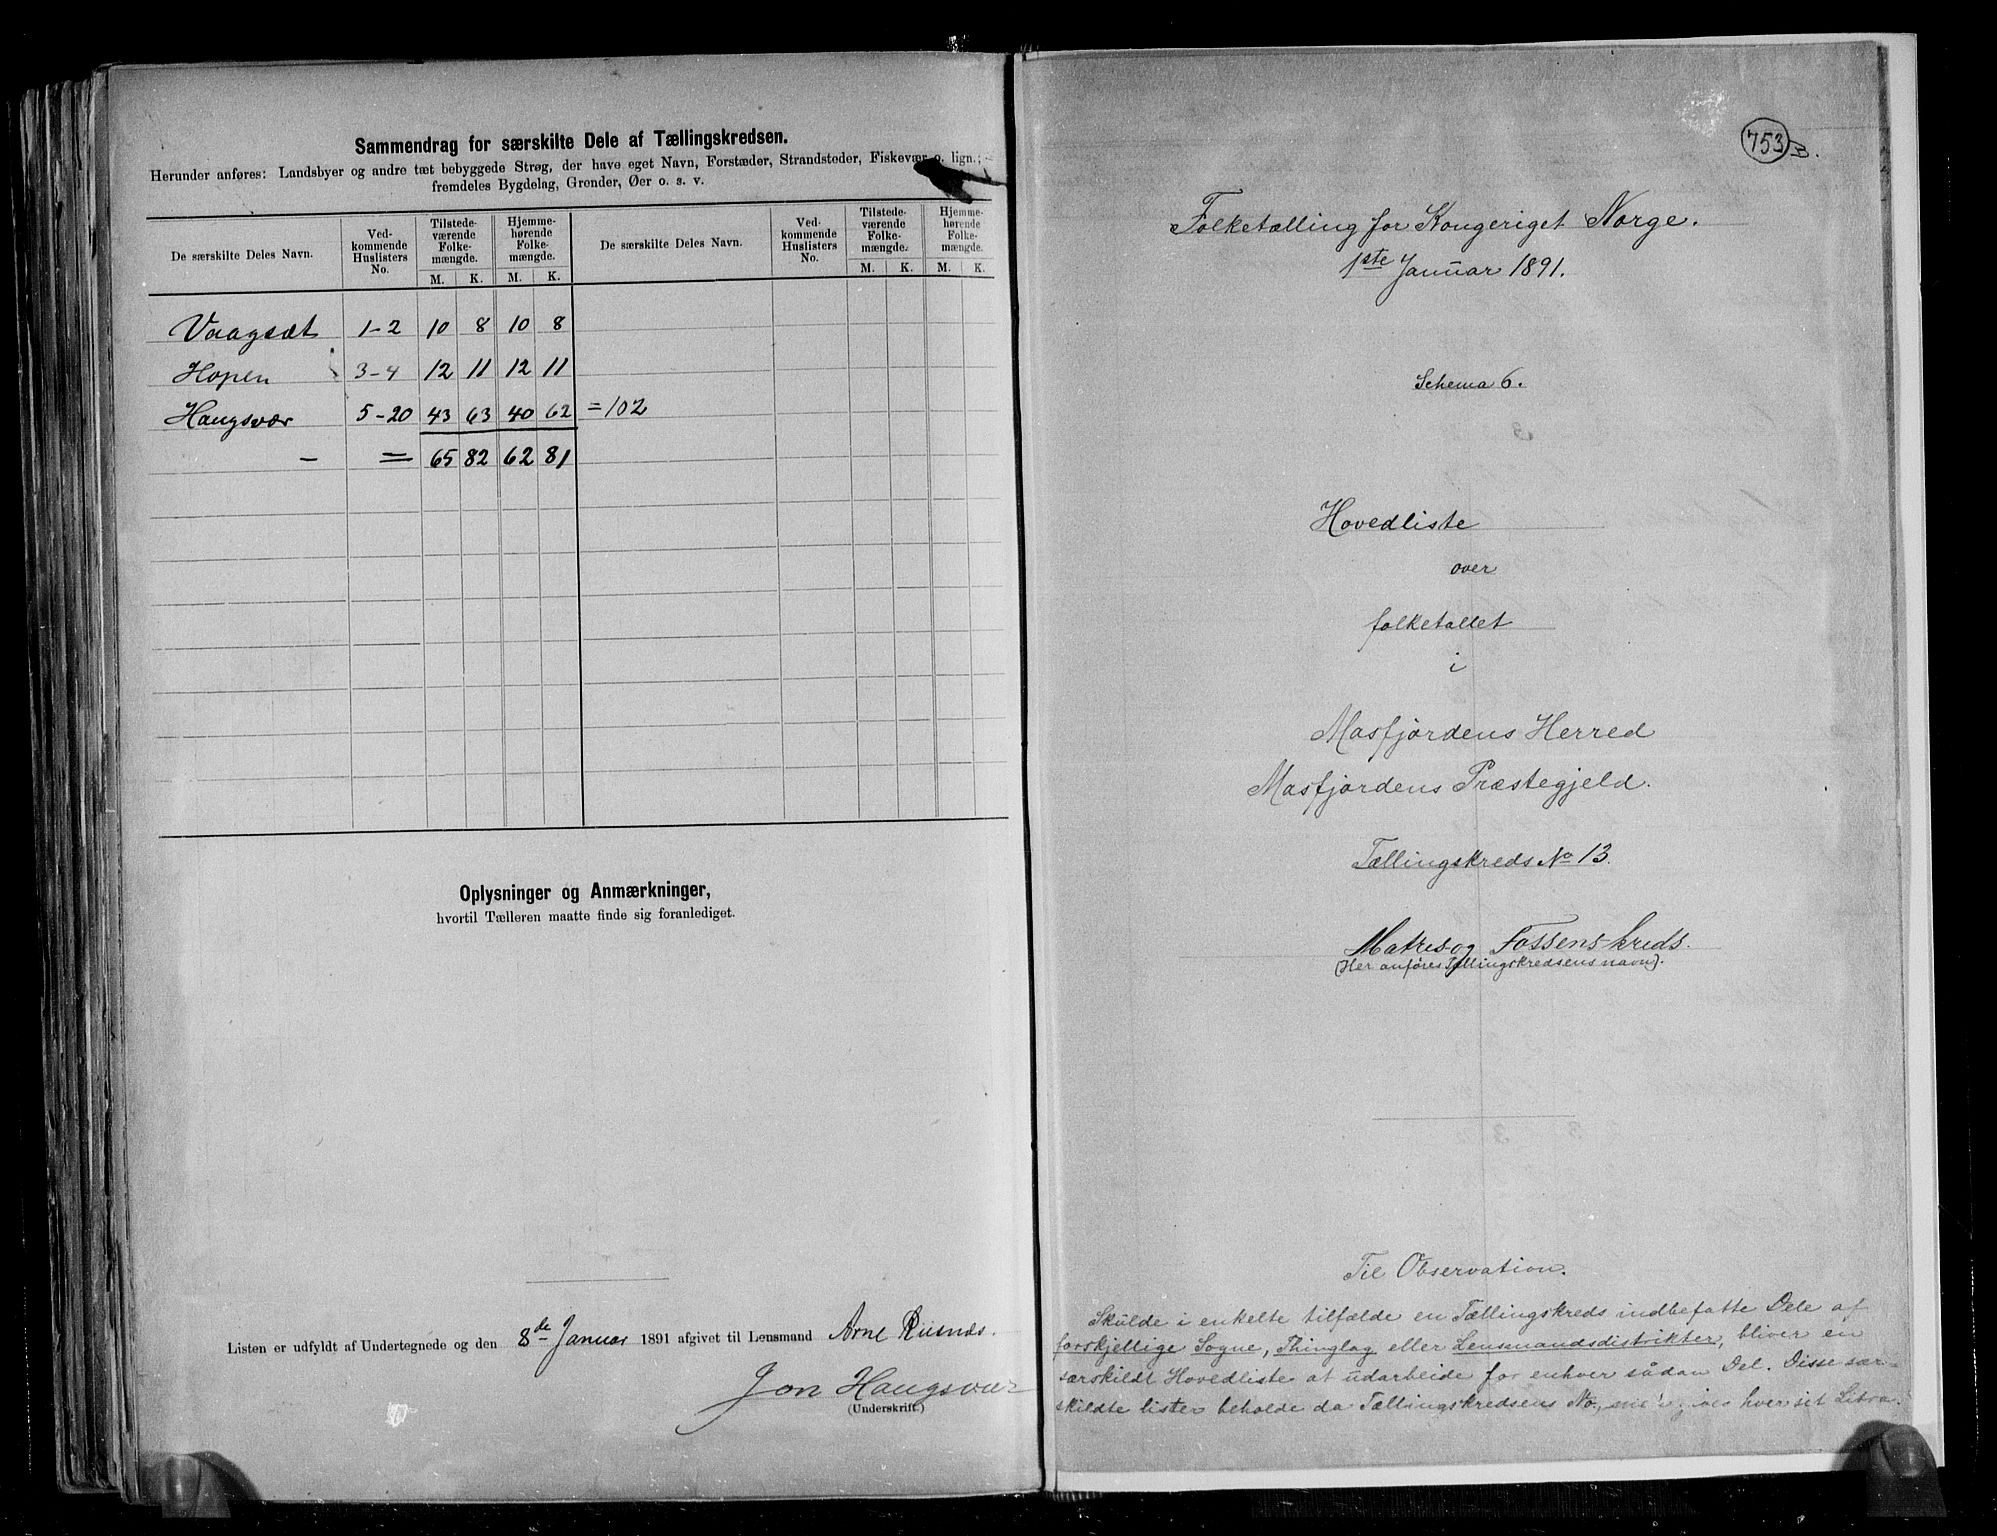 Sammendrag for særskilte Dele af Tællingskredsen.
Herunder anføres: Landsbyer og andre tæt bebyggede Strøg, der have eget Navn, Forstæder, Strandsteder, Fiskevær o. lign.;
fremdeles Bygdelag, Grender, Øer o. s. v.
De særskilte Deles Navn. Ved-kommende Huslisters No. Tilstede-værende Folke-mængde. Hjemme-hørende Folke-mængde. De særskilte Deles Navn. Ved-kommende Huslisters No. Tilstede-værende Folke-mængde. Hjemme-hørende Folke-mængde.
M. K. M. K. M. K. M. K.
Vaagsæt 1-2 10 8 10 8
Hopen 3-4 12 11 12 11
Haugsvær 5-20 43 63 40 62 =102
— = 65 82 62 81
Oplysninger og Anmærkninger,
hvortil Tælleren maatte finde sig foranlediget.
Listen er udfyldt af Undertegnede og den 8de Januar 1891 afgivet til Lensmand Arne Risnes.
Jon Haugsvær
(Underskrift.)
753 B.
Folketælling for Kongeriget Norge.
1ste Januar 1891.
Schema 6.
Hovedliste
over
folketallet
i
Masfjordens Herred
Masfjordens Præstegjeld.
Tællingskreds No 13.
Matres og Fossens kreds.
(Her anføres Tællingskredsens navn).
Til Observation.
Skulde i enkelte tilfælde en Tællingskreds indbefatte Dele af
forskjellige Sogne, Thinglag eller Lensmandsdistrikter, bliver en
særskildt Hovedliste at udarbeide for enhver sådan Del. Disse sær=
skildte lister beholde da Tællingskredsens No., men gives hver sit Litra.